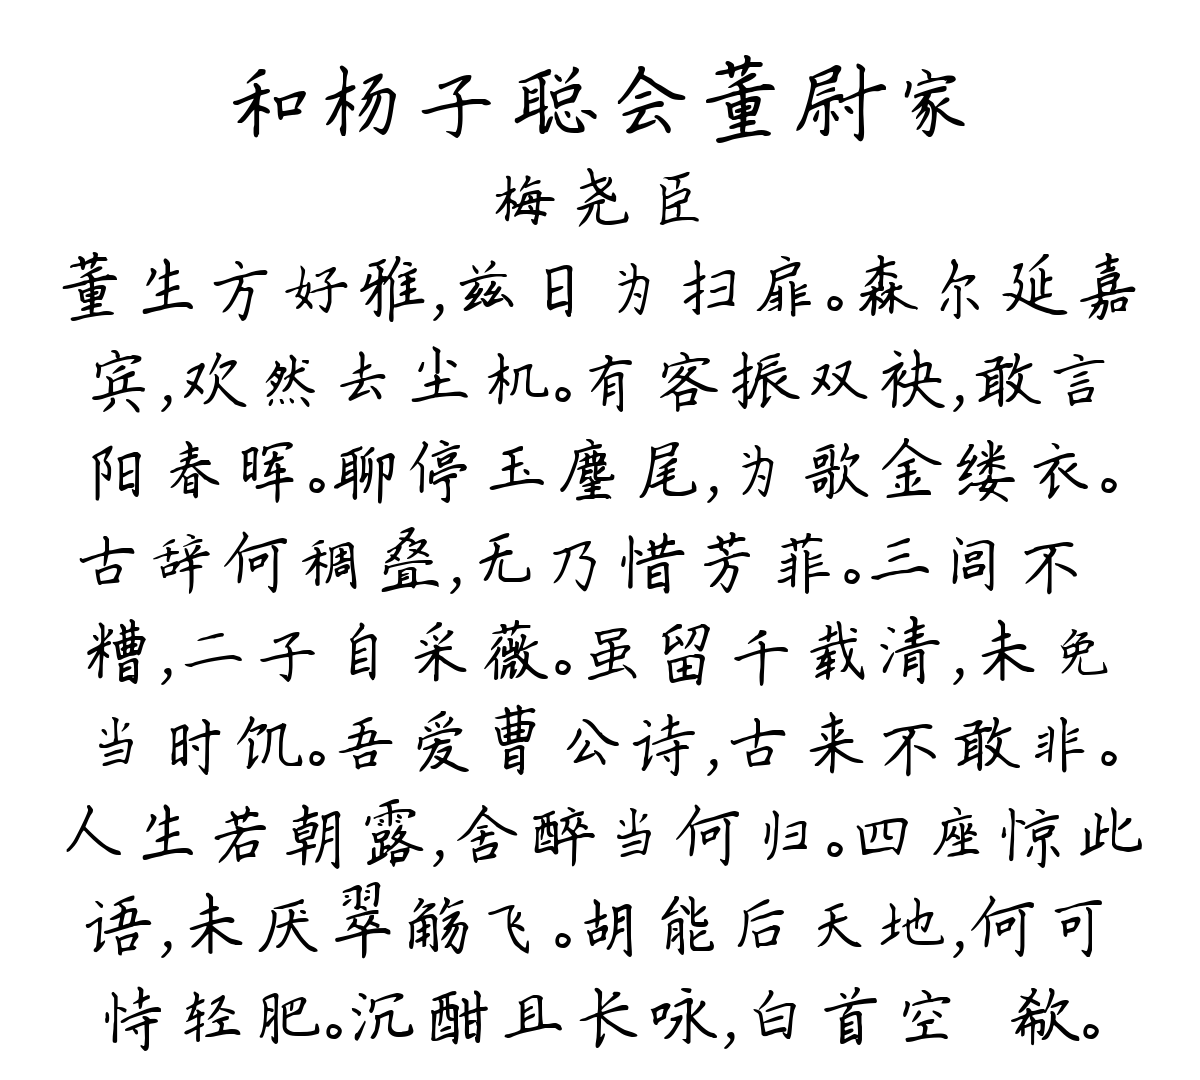 和杨子聪会董尉家
梅尧臣
董生方好雅,兹日为扫扉。森尔延嘉
宾,欢然去尘机。有客振双袂,敢言
阳春晖。聊停玉麈尾,为歌金缕衣。
古辞何稠叠,无乃惜芳菲。三闾不
糟,二子自采薇。虽留千载清,未免
当时饥。吾爱曹公诗,古来不敢非。
人生若朝露,舍醉当何归。四座惊此
语,未厌翠觞飞。胡能后天地,何可
恃轻肥。沉酣且长咏,白首空 欷。